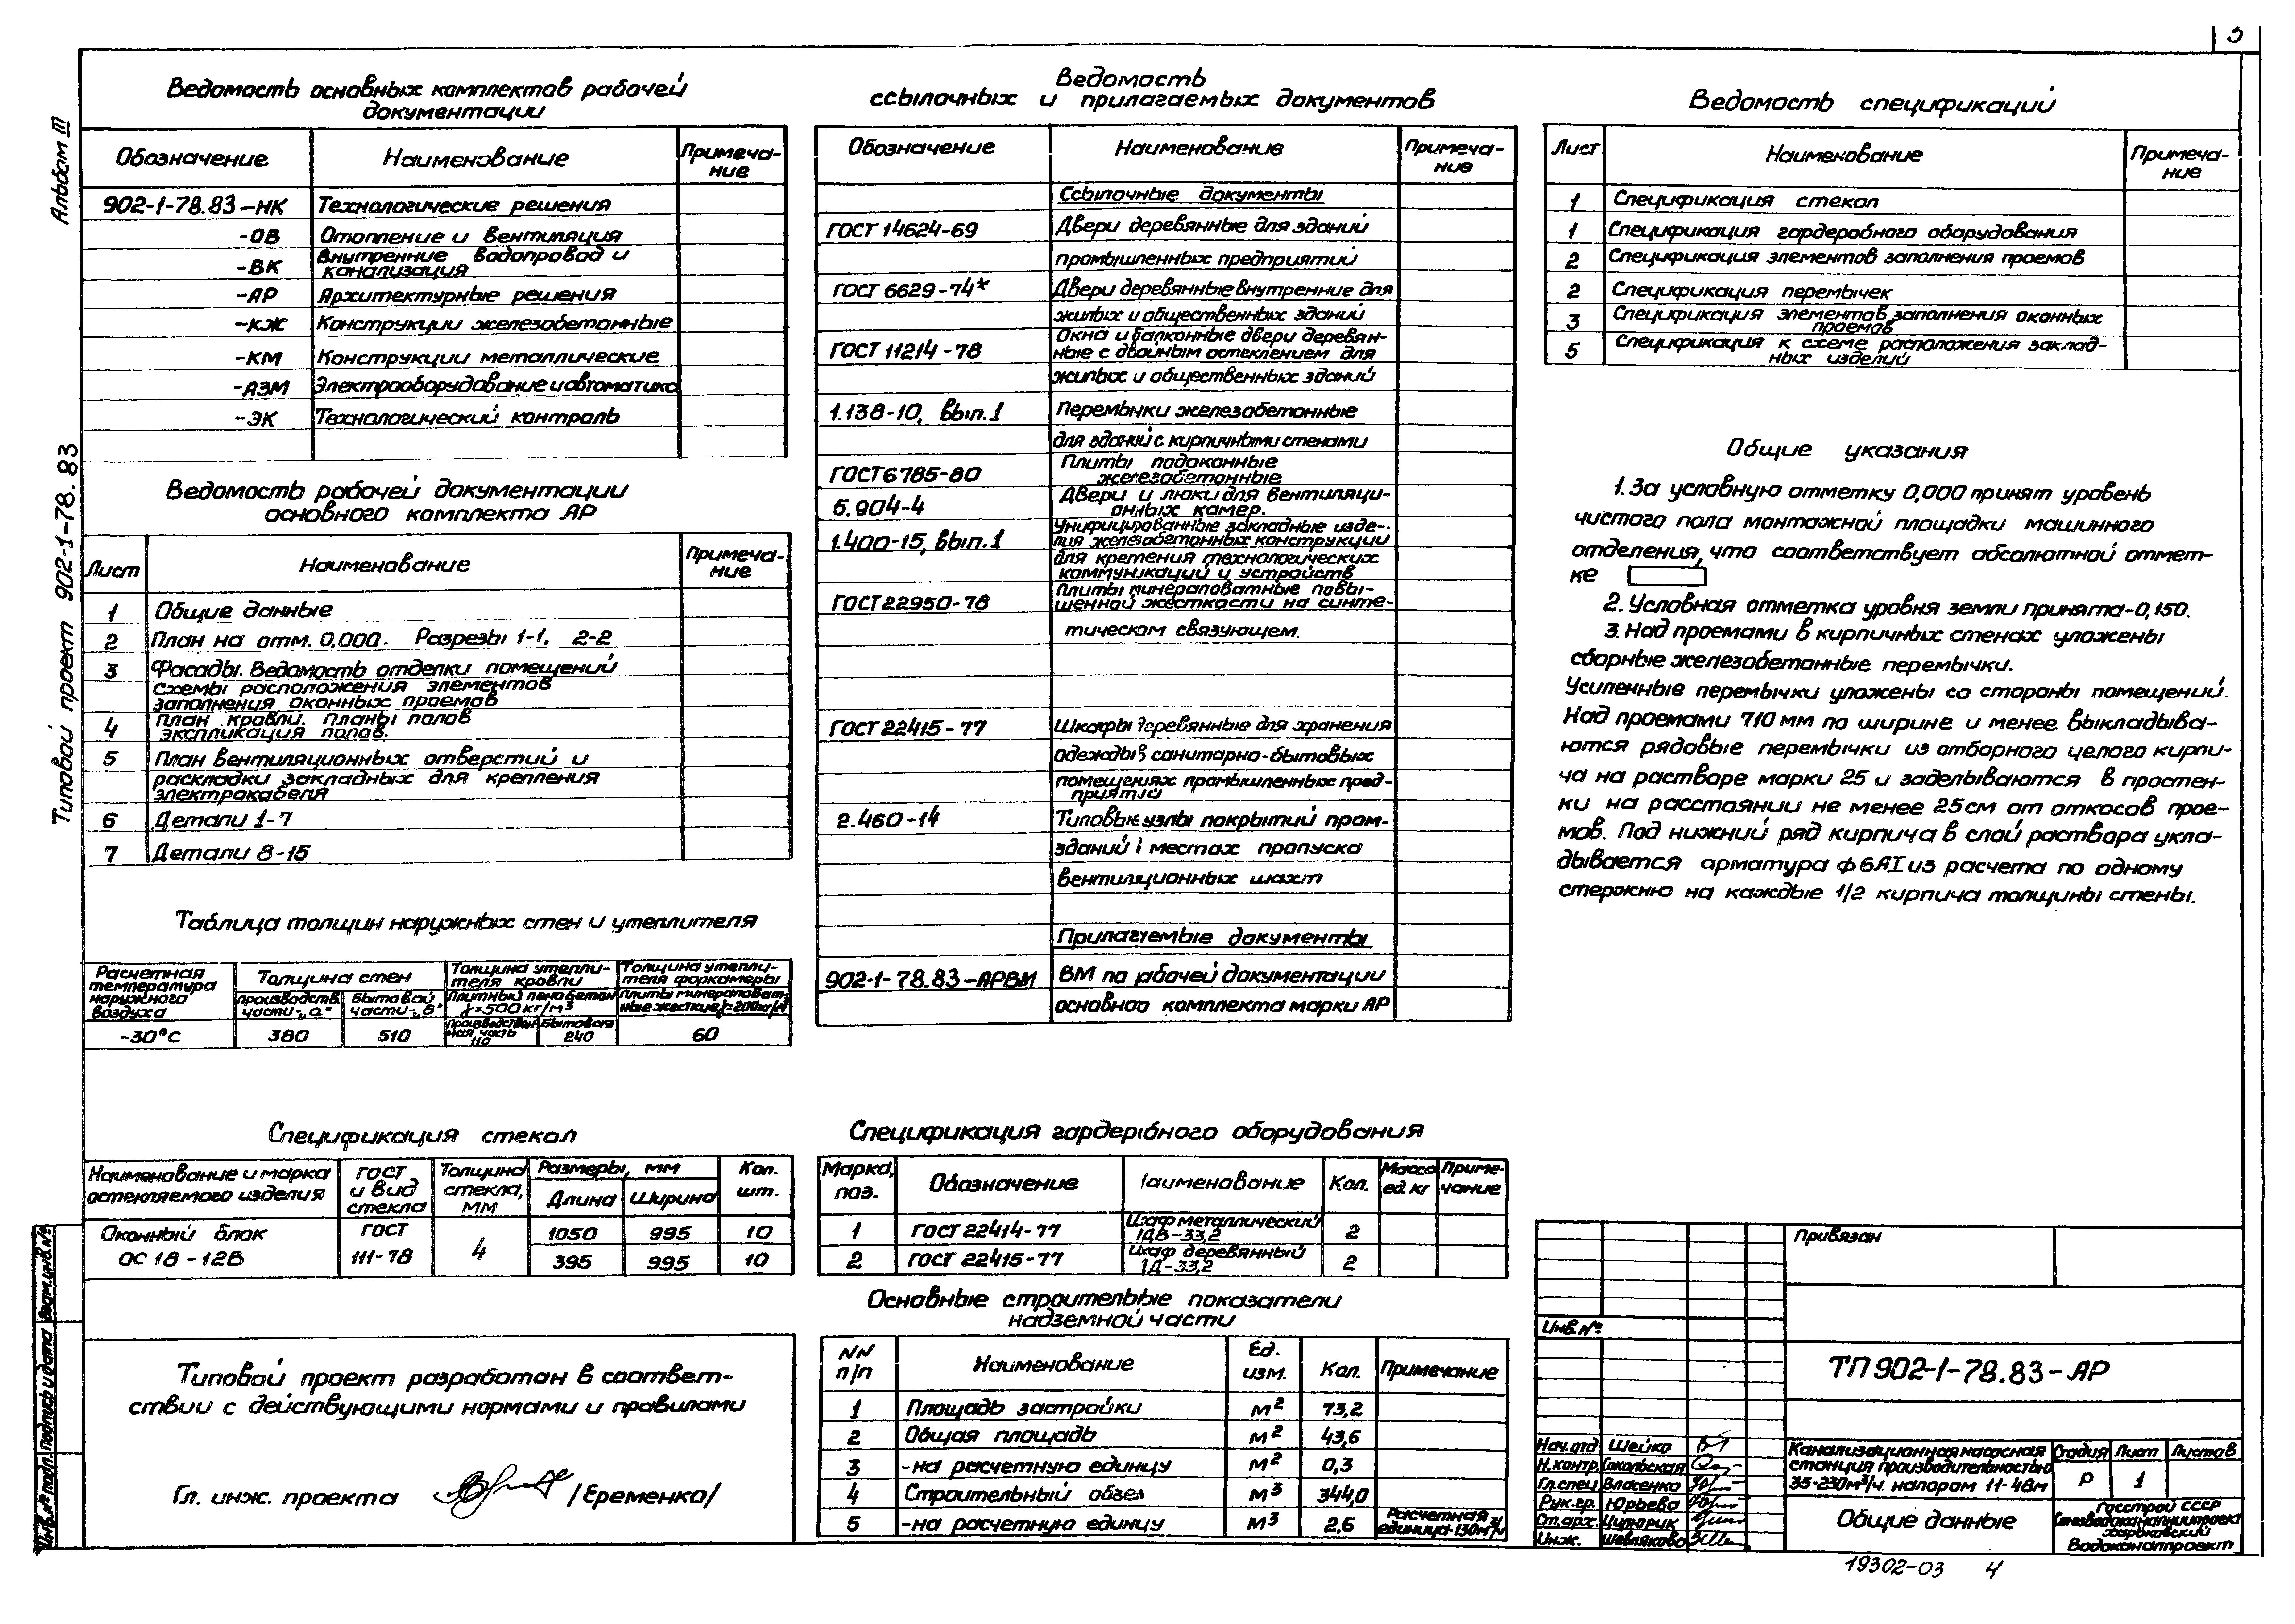 3
Альбом III
Типовой проект 902-1-78.83
Ведомость основных комплектов рабочей
документации
Обозначение Наименование Примеча-
ние
902-1-78.83-НК Технологические решения
-ОВ Отопление и вентиляция
-ВК Внутренние водопровод и
канализация
-АР Архитектурные решения
-КЖ Конструкции железобетонные
-КМ Конструкции металлические
-АЭМ Электрооборудование и автоматика
-ЭК Технологический контроль
Ведомость рабочей документации
основного комплекта АР
Лист Наименование Примеча-
ние
1 Общие данные
2 План на отм. 0,000. Разрезы 1-1, 2-2
3 Фасады. Ведомость отделки помещений
Схемы расположения элементов
заполнения оконных проемов
4 План кровли. Планы полов
экспликация полов.
5 План вентиляционных отверстий и
раскладки закладных для крепления
электрокабеля
6 Детали 1-7
7 Детали 8-15
Таблица толщин наружных стен и утеплителя
Расчетная
температура
наружного
воздуха
Толщина стен
производств.
части-„а"
бытовой
части-„б"
Толщина утепли-
теля кровли
Плитный пенобетон
γ=500 кг/м³
Толщина утепли-
теля форкамеры
Плиты минераловат-
ные жесткие γ=200кг/м³
-30°С 380 510 Производствен
ная часть
110
Бытовая
240
60
Спецификация стекол
Наименование и марка
остекляемого изделия
ГОСТ
и вид
стекла
Толщина
стекла,
мм
Размеры, мм
Длина Ширина
Кол.
шт.
Оконный блок
ОС 18-12В
ГОСТ
111-78
4
1050 995 10
395 995 10
Типовой проект разработан в соответ-
ствии с действующими нормами и правилами
Гл. инж. проекта /Еременко/
Ведомость
ссылочных и прилагаемых документов
Обозначение Наименование Примеча-
ние
Ссылочные документы
ГОСТ 14624-69 Двери деревянные для зданий
промышленных предприятий
ГОСТ 6629-74* Двери деревянные внутренние для
жилых и общественных зданий
ГОСТ 11214-78 Окна и балконные двери деревян-
ные с двойным остеклением для
жилых и общественных зданий
1.138-10, вып.1 Перемычки железобетонные
для зданий с кирпичными стенами
ГОСТ 6785-80 Плиты подоконные
железобетонные
5.904-4 Двери и люки для вентиляци-
онных камер.
1.400-15, вып.1 Унифицированные закладные изде-
лия железобетонных конструкции
для крепления технологических
коммуникаций и устройств
ГОСТ 22950-78 Плиты минераловатные повы-
шенной жесткости на синте-
тическом связующем.
ГОСТ 22415-77 Шкафы деревянные для хранения
одежды в санитарно-бытовых
помещениях промышленных пред-
приятий
2.460-14 Типовые узлы покрытий пром-
зданий в местах пропуска
вентиляционных шахт
Прилагаемые документы
902-1-78.83-АРВМ ВМ по рабочей документации
основного комплекта марки АР
Спецификация гардеробного оборудования
Марка,
поз.
Обозначение Наименование Кол. Масса
ед. кг
Приме-
чание
1 ГОСТ 22414-77 Шкаф металлический
1ДВ-33,2
2
2 ГОСТ 22415-77 Шкаф деревянный
1Д-33,2
2
Основные строительные показатели
надземной части
NN
п/п
Наименование Ед.
изм.
Кол. Примечание
1 Площадь застройки м² 73,2
2 Общая площадь м² 43,6
3 -на расчетную единцу м² 0,3
4 Строительный объем м³ 344,0
5 -на расчетную единцу м³ 2,6 Расчетная
единица-130м³/ч
Ведомость спецификаций
Лист Наименование Примеча-
ние
1 Спецификация стекол
1 Спецификация гардеробного оборудования
2 Спецификация элементов заполнения проемов
2 Спецификация перемычек
3 Спецификация элементов заполнения оконных
проемов
5 Спецификация к схеме расположения заклад-
ных изделий
Общие указания
1. За условную отметку 0,000 принят уровень
чистого пола монтажной площадки машинного
отделения, что соответствует абсолютной отмет-
ке
2. Условная отметка уровня земли принята-0,150.
3. Над проемами в кирпичных стенах уложены
сборные железобетонные перемычки.
Усиленные перемычки уложены со стороны помещений.
Над проемами 710 мм по ширине и менее выкладыва-
ются рядовые перемычки из отборного целого кирпи-
ча на растворе марки 25 и заделываются в простен-
ки на расстоянии не менее 25 см от откосов прое-
мов. Под нижний ряд кирпича в слой раствора укла-
дывается арматура ф 6АI из расчета по одному
стержню на каждые 1/2 кирпича толщины стены.
Привязан
Инв.№
ТП 902-1-78.83-АР
Нач.отд Шейко
Н.контр. Сокольская
Гл.спец Власенко
Рук.гр. Юрьева
Ст.арх. Цупорик
Инж. Шевляково
Канализационная насосная
станция производительностью
35-230м³/ч. напором 11-48м
Стадия Лист Листов
Р 1
Общие данные
Госстрой СССР
Союзводоканалниипроект
Харьковский
Водоканалпроект
19302-03 4
Инв.№ подл. Подпись и дата Взам.инв.№